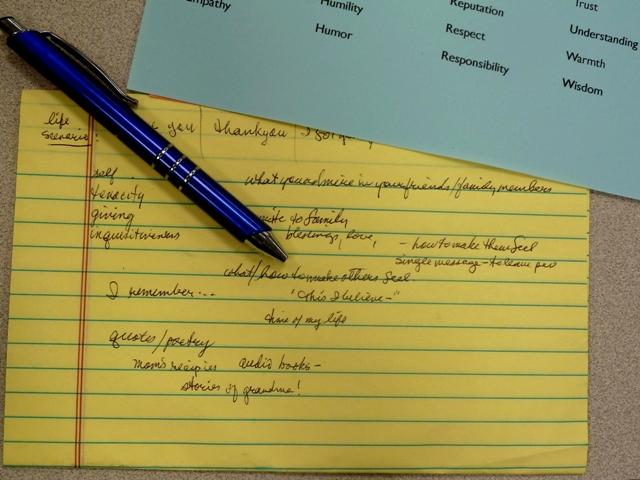 Empathy
Humility
Humor
Reputation
Respect
Responsibility
Trust
Understanding
Warmth
Wisdom
life
scenario: you thankyou
self
tenacity
giving
inquisitiveness
what you admire in your friends/family members
write to family
blessings, love,
- how to make them feel
single message - to leave
what/how to make others feel
I remember...
"this I believe-"
time of my life
quotes/poetry
mom's recipies
audio books-
stories of grandma!